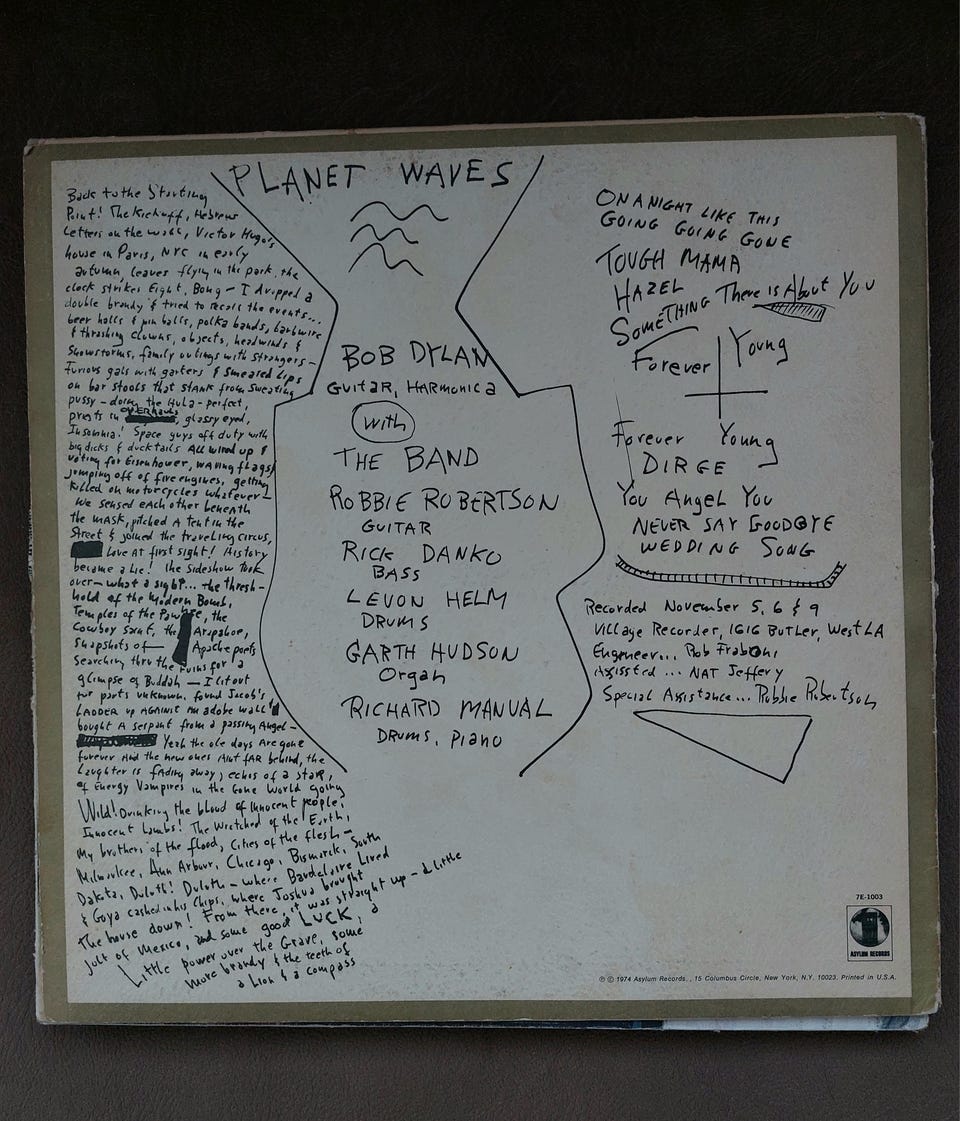 PLANET WAVES
Back to the Starting
Point! The Kickoff, Hebrew
Letters on the wall, Victor Hugo's
house in Paris, NYC in early
autumn, leaves flying in the park, the
clock strikes Eight, Bong – I dropped a
double brandy & tried to recall the events...
beer halls & pin balls, polka bands, barbwire
& thrashing clowns, objects, headwinds &
Snowstorms, family outings with strangers –
Furious gals with garters & smeared Lips
on bar stools that stank from sweating
pussy – doing the Hula – perfect,
priests in overhauls, glassy eyed,
Insomnia! Space guys off duty with
big dicks & ducktails All wired up &
voting for Eisenhower, waving flags &
jumping off of fire engines, getting
killed on motorcycles whatever –
We sensed each other beneath
the mask, pitched a tent in the
Street & joined the traveling circus,
Love at first sight! History
became a Lie! the sideshow took
over – what a sight... the thresh-
hold of the Modern Bomb,
Temples of the Pawnee, the
Cowboy saint, the Arapahoe,
snapshots of Apache poets
searching thru the ruins for a
glimpse of Buddah – I lit out
for parts unknown, found Jacob's
LADDER up AGAINST an adobe wall &
bought A serpent from a passing Angel –
Yeah the ole days Are gone
forever And the new ones Aint fAR behind, the
Laughter is fAding away, echos of a staR,
of Energy Vampires in the Gone World going
Wild! Drinking the blood of innocent people,
Innocent Lambs! The Wretched of the Earth,
My brothers of the flood, Cities of the flesh –
Milwaukee, Ann Arbour, Chicago, Bismarck, South
Dakota, Duluth! Duluth – where Baudelaire Lived
& Goya cashed in his Chips, where Joshua brought
the house down! From there, it was straight up – a little
jolt of Mexico, and some good LUCK, a
Little power over the Grave, some
more brandy & the teeth of
a Lion & a compass
BOB DYLAN
GUITAR, HARMONICA
with
THE BAND
ROBBIE ROBERTSON
GUITAR
RICK DANKO
BASS
LEVON HELM
DRUMS
GARTH HUDSON
Organ
RICHARD MANUAL
DRUMS, PIANO
ON A NIGHT LIKE THIS
GOING GOING GONE
TOUGH MAMA
HAZEL
SOMETHING There is About You
Forever Young
Forever Young
DIRGE
You Angel You
NEVER SAY GOODBYE
WEDDING SONG
Recorded November 5, 6 & 9
Village Recorder, 1616 BUTLER, West LA
Engineer... Rob Fraboni
Assissted ... NAT Jeffery
Special Assistance... Robbie Robertson
7E-1003
ASYLUM RECORDS
℗ © 1974 Asylum Records, , 15 Columbus Circle, New York, N.Y. 10023. Printed in U.S.A.